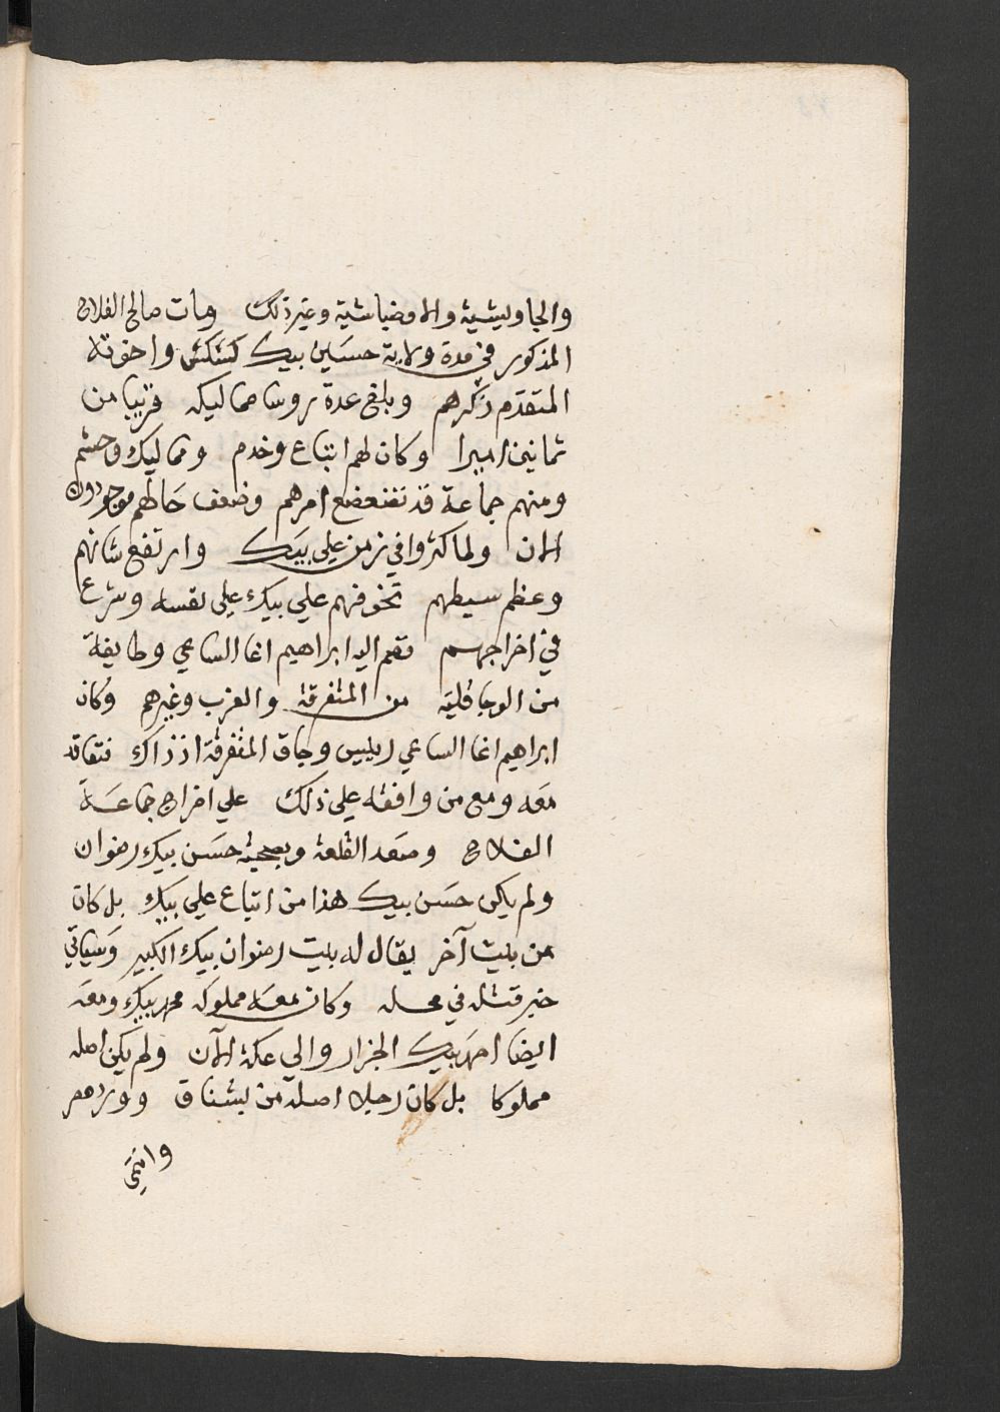 والجاويشية والاوضباشية وغير ذلك ومات صالح الفلاح
المذكور في مدة ولاية حسين بيك كشكش واخوته
المتقدم ذكرهم وبلغ عدة روسا مماليكه قريبا من
ثمانين اميرا وكان لهم اتباع وخدم ومماليك وحشم
ومنهم جماعة قد تضعضع امرهم وضعف حالهم موجودون
الان ولما كثروا في زمن علي بيك وارتفع شانهم
وعظم سيطهم تخوفهم علي بيك على نفسه وشرع
في اخراجهم فضم اليه ابراهيم اغا الساعي وطايفة
من الوجاقلية من المتفرقة والعزب وغيرهم وكان
ابراهيم اغا الساعي رييس وجاق المتفرقة اذ ذاك فتعاقد
معه ومع من وافقه على ذلك علي اخراج جماعة
الفلاح وصعد القلعة وبصحبته حسن بيك رضوان
ولم يكن حسن بيك هذا من اتباع علي بيك بل كان
من بيت آخر يقال له بيت رضوان بيك الكبير وسياتي
خبر قتله في محله وكان معه مملوكه محمد بيك ومعه
ايضا احمد بيك الجزار والي عكة الآن ولم يكن اصله
مملوكا بل كان رجلا اصله من بشناق وورد مصر
وانتمى